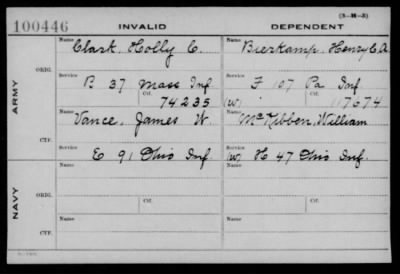 (3-H-3)
100446 INVALID DEPENDENT
ARMY
ORIG.
Name Clark, Holly C. Name Bierkamp, Henry C. A.
Service B 37 Mass Inf. Service F 107 Pa Inf
Ctf. 74235 (W) Ctf. 117674
CTF.
Name Vance, James W. Name McKibben, William
Service E 91 Ohio Inf. Service (W) H 47 Ohio Inf.
NAVY
ORIG.
Name Name
Service Ctf. Service Ctf.
CTF.
Name Name
Service Service